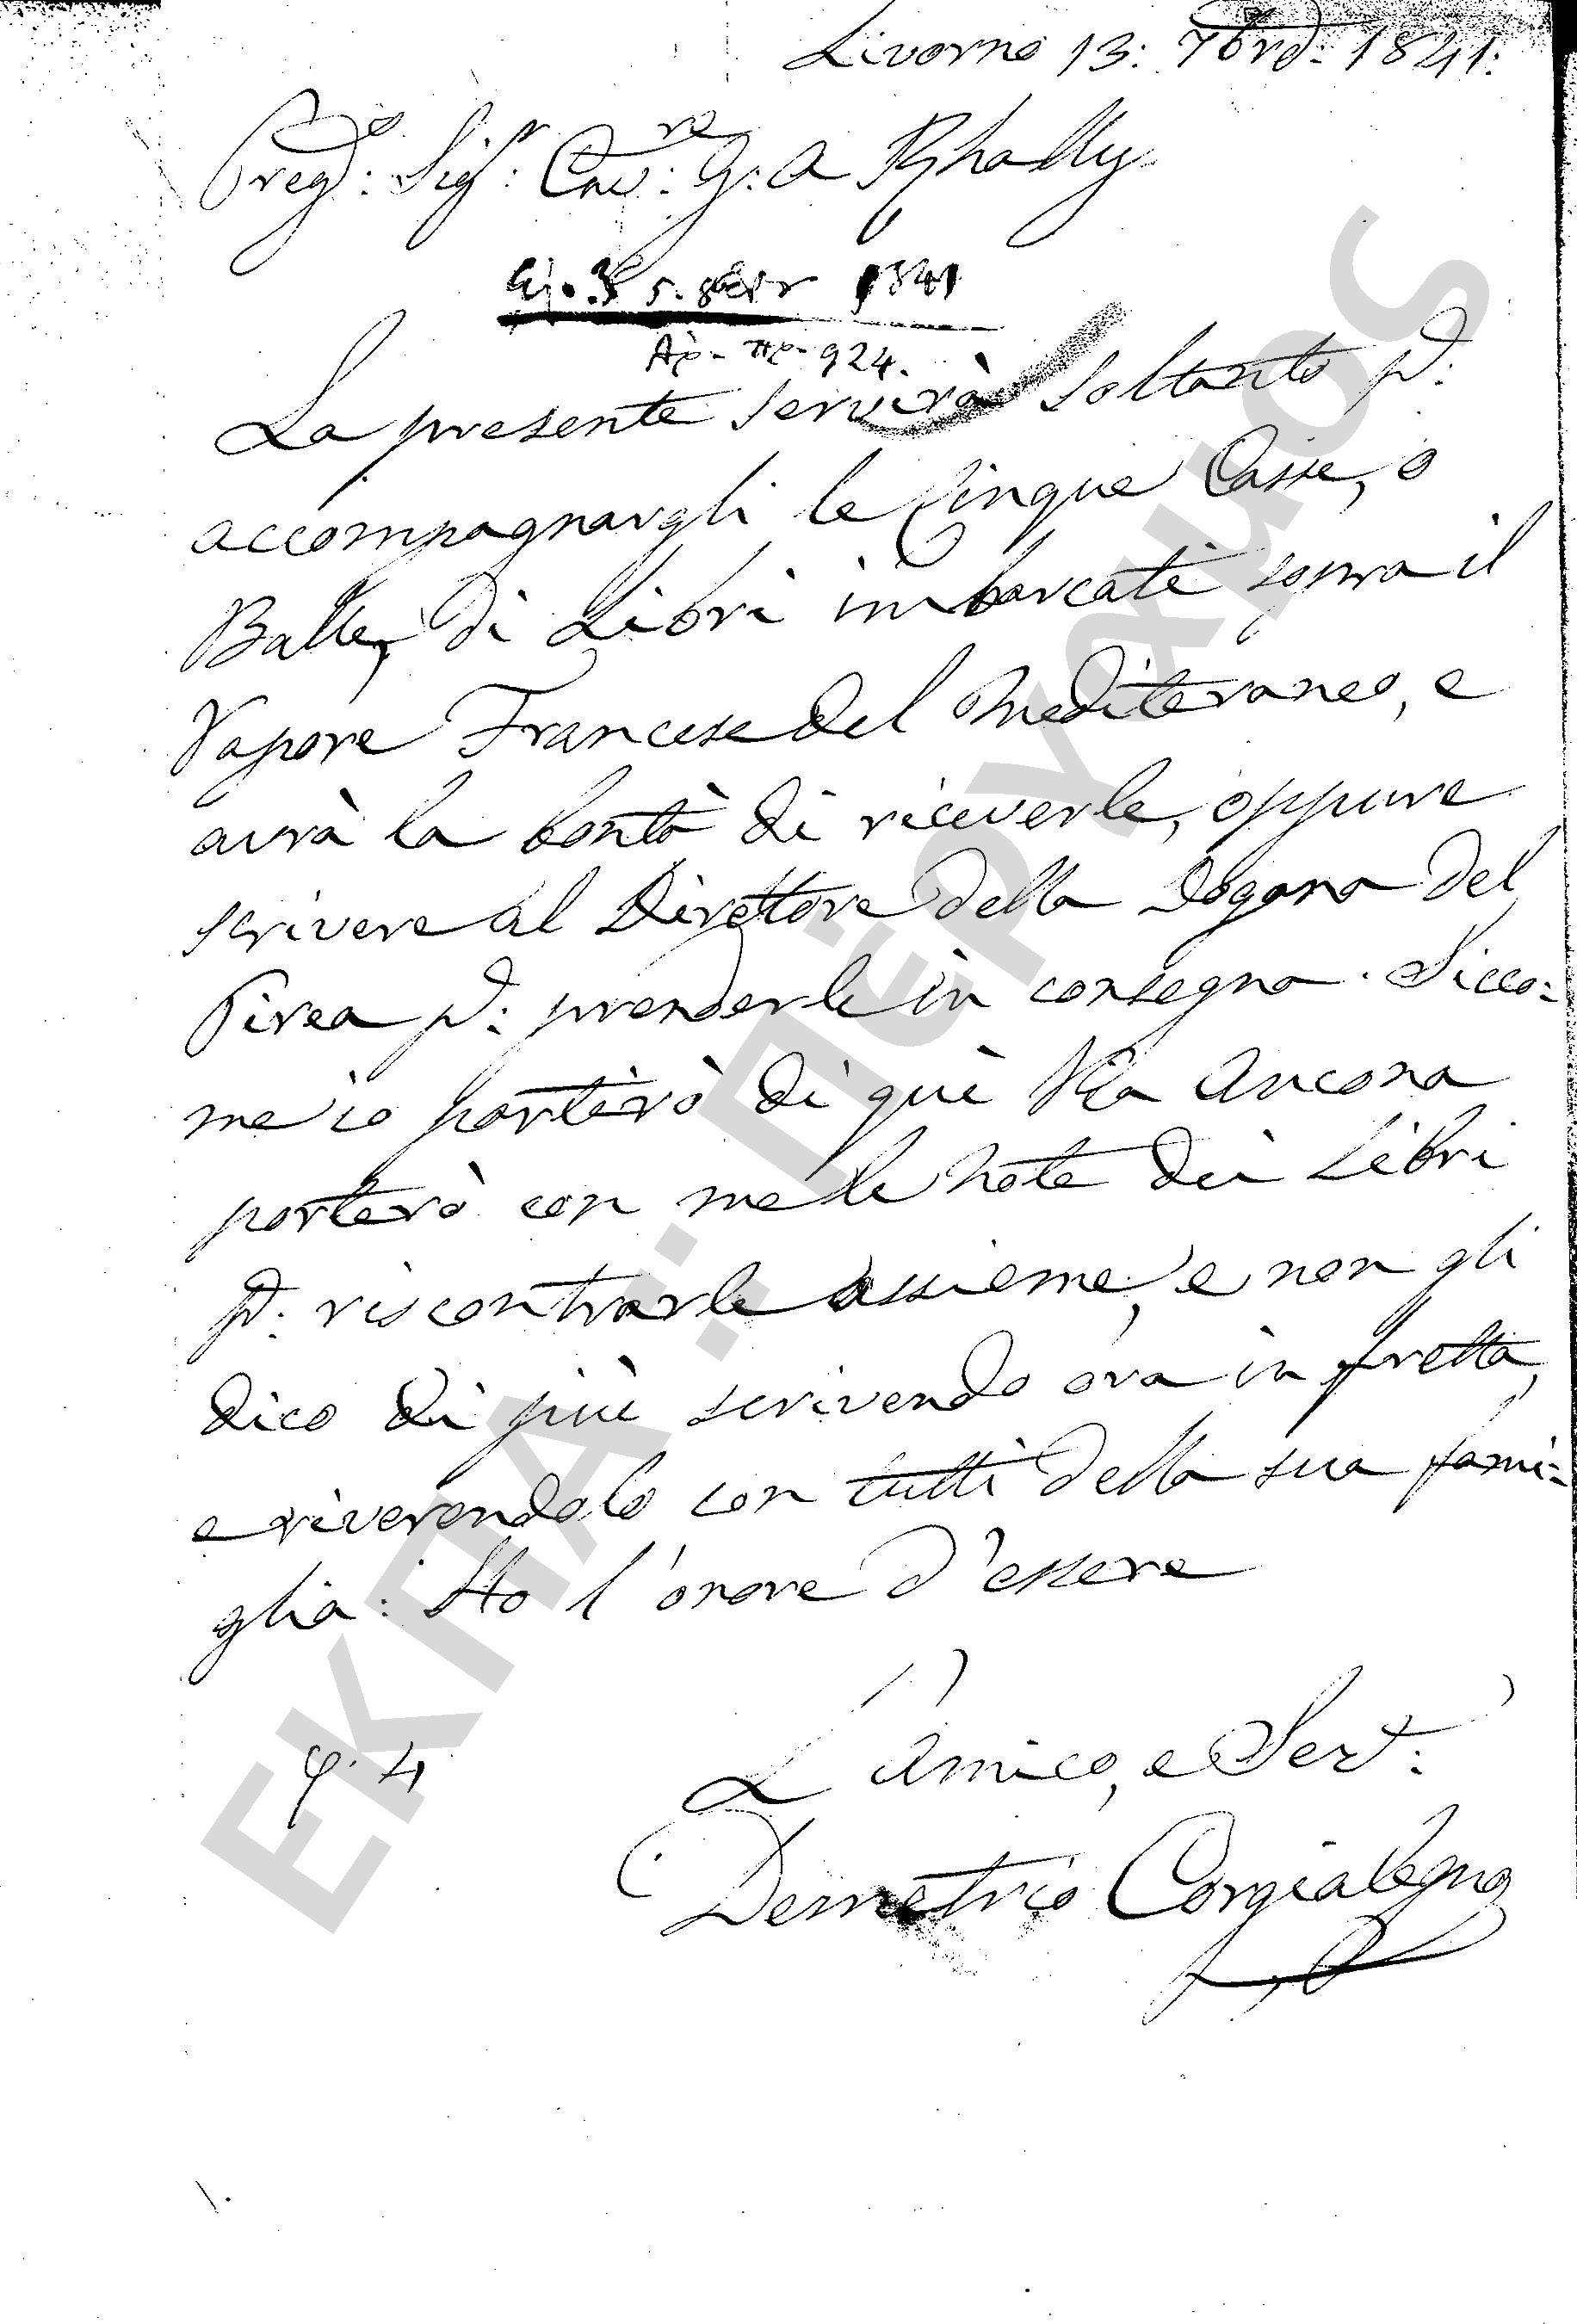 Livorno 13: 7brē: 1841:
Pregᵒ: Sigʳ: Cavʳᵉ: G: A Rhally
1841
Ἀρ- πρ- 924.
La presente servirà soltanto p:
accompagnargli le Cinque Casse, o
Balle, di Libri imbarcati sopra il
Vapore Francese del Mediteraneo, e
avrà la bontà di riceverle, oppure
scrivere al Direttore della Dogana del
Pirea p: prenderle in consegna. Sicco=
me io partirò di quì Via Ancona
porterò con me le note dei Libri
p: riscontrarle assieme, e non gli
dico di più scrivendo ora in fretta,
e riverendolo con tutti della sua fami=
glia: Ho l'onore d'essere
L'Amico, e Serv:
φ. 4
Demetrio Corgialegno
ΕΚΠΑ :: Πέργαμος